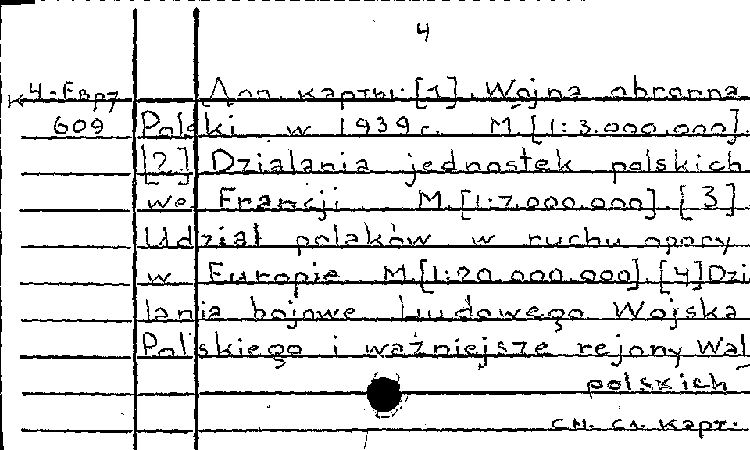 4
К 4-Евр7
609
Доп. карты: [1]. Wojna obronna
Polski w 1939 г. М.[1:3.000.000].
[2] Dzialania jednostek polskich
we Francji. М.[1:7.000.000]. [3]
Udział polaków w ruchu opory
w Europie М.[1:20.000.000].[4]Dzi
lania bojowe Ludowego Wojska
Polskiego i ważniejsze rejony Wal
polskich
см. сл. карт.